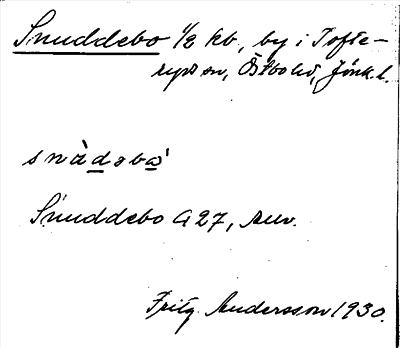 Snuddebo 1/2 kb, by i Tofte-
ryds sn, Östbo hd, Jönk. l.
snùdəba'
Snuddebo A 27,
Fritz Andersson 1930.